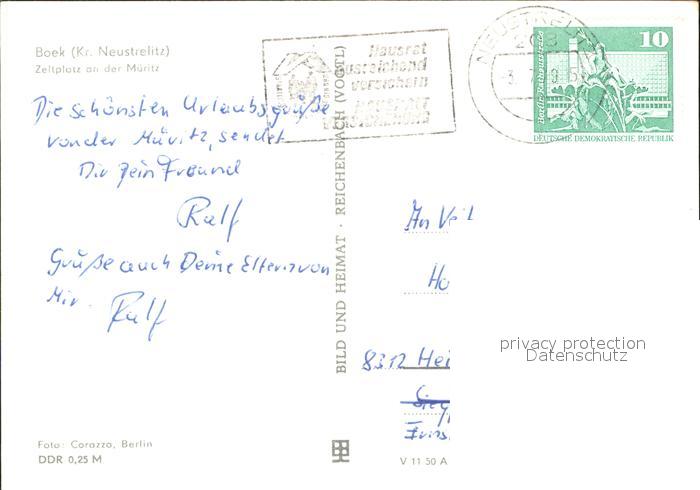 Boek (Kr. Neustrelitz)
Zeltplatz an der Müritz
Die schönsten Urlaubsgrüße
von der Müritz, sendet
Dir Dein Freund
Ralf
Grüße auch Deine Eltern von
Mir. Ralf
Foto: Corazza, Berlin
DDR 0,25 M
BILD UND HEIMAT · REICHENBACH (VOGTL)
V 11 50 A
Hausrat
ausreichend
versichern
NEUSTRELITZ
10
Berlin-Rathausstraße
DEUTSCHE DEMOKRATISCHE REPUBLIK
An
8312 Hei
privacy protection
Datenschutz